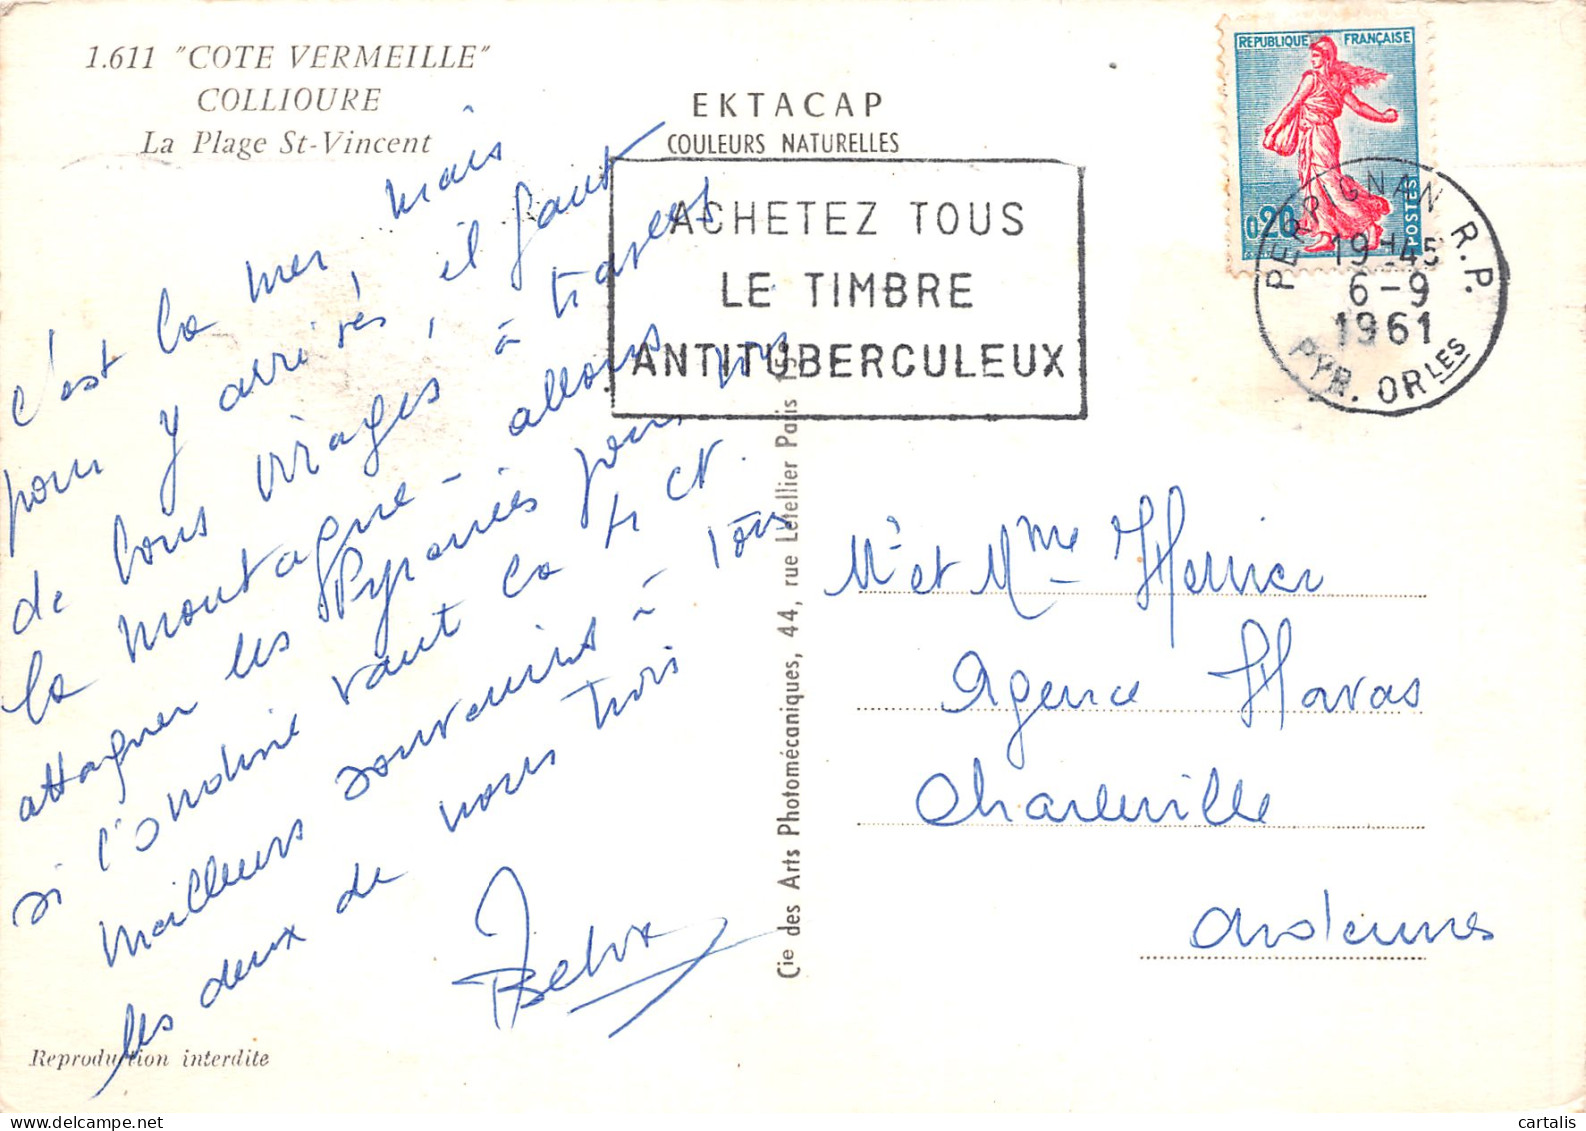 1.611 "COTE VERMEILLE"
COLLIOURE
La Plage St-Vincent
EKTACAP
COULEURS NATURELLES
REPUBLIQUE FRANÇAISE
0,20
POSTES
PERPIGNAN R.P.
19H45
6-9
1961
PYR. ORLES
ACHETEZ TOUS
LE TIMBRE
ANTITUBERCULEUX
c'est la mer, mais
pour y arriver, il faut
de bons virages à travers
la montagne - allons
attaquer les Pyrénées pour voir
si l'ondine vaut la 4 CV.
Meilleurs souvenirs à tous
les deux de nous trois
Cie des Arts Photomécaniques, 44, rue Letellier Paris 15
Mr et Mme
Agence Havas
Charleville
Ardennes
Reproduction interdite
cartalis